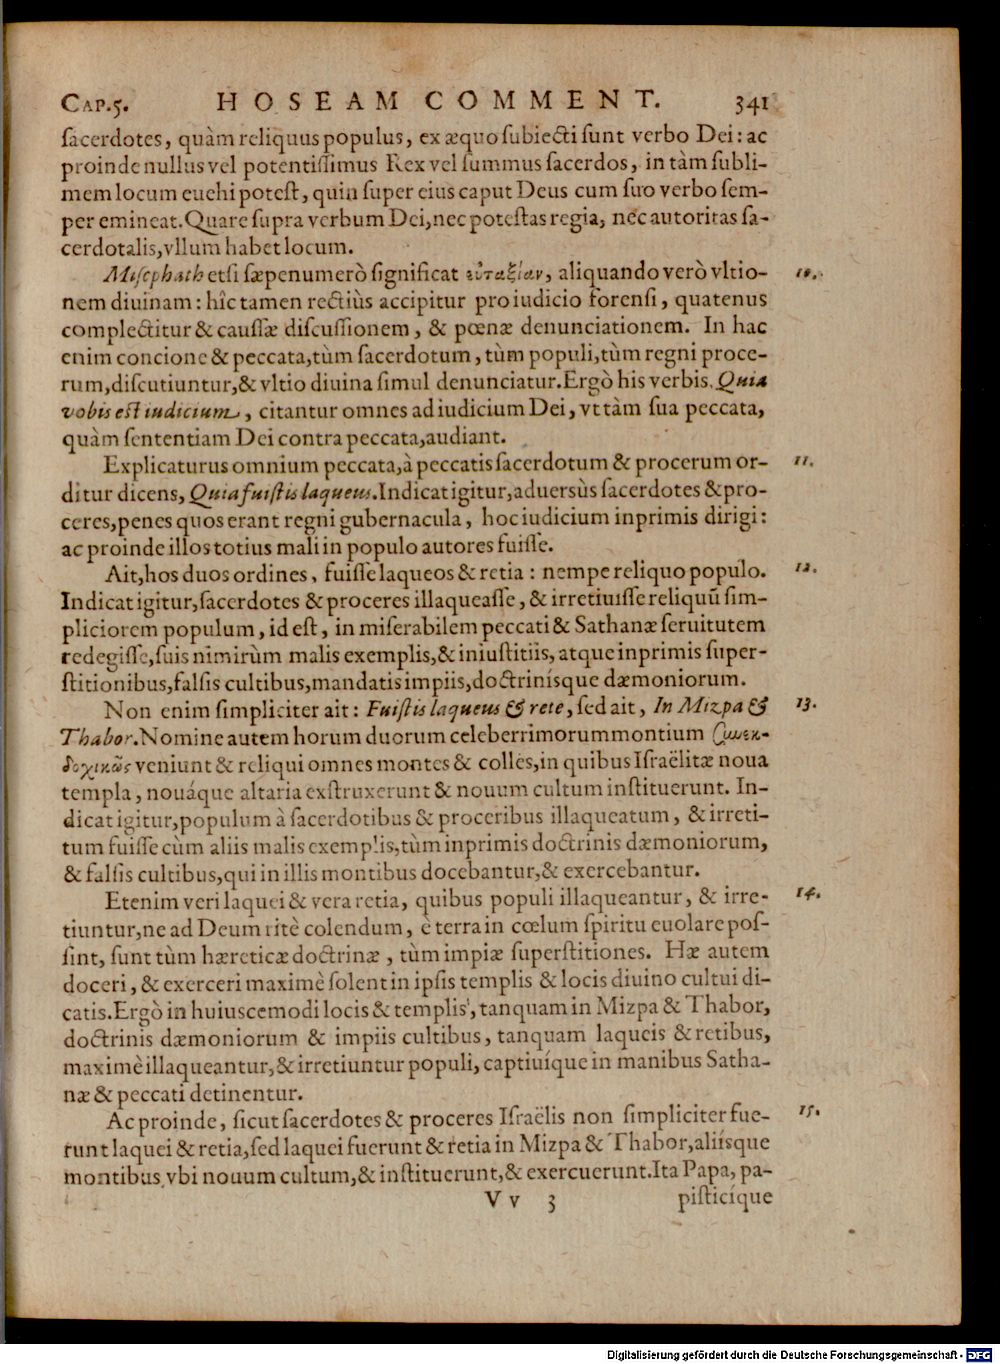 CAP.5. HOSEAM COMMENT. 341
sacerdotes, quàm reliquus populus, ex æquo subiecti sunt verbo Dei: ac
proinde nullus vel potentissimus Rex vel summus sacerdos, in tàm subli-
mem locum euehi potest, quin super eius caput Deus cum suo verbo sem-
per emineat. Quare supra verbum Dei, nec potestas regia, nec autoritas sa-
cerdotalis, vllum habet locum.
Miscphath etsi sæpenumerò significat εὐταξίαν, aliquando verò vltio- 10.
nem diuinam: hîc tamen rectiùs accipitur pro iudicio forensi, quatenus
complectitur & caussæ discussionem, & pœnæ denunciationem. In hac
enim concione & peccata, tùm sacerdotum, tùm populi, tùm regni proce-
rum, discutiuntur, & vltio diuina simul denunciatur. Ergò his verbis, Quia
vobis est iudicium, citantur omnes ad iudicium Dei, vt tàm sua peccata,
quàm sententiam Dei contra peccata, audiant.
Explicaturus omnium peccata, à peccatis sacerdotum & procerum or- 11.
ditur dicens, Quia fuistis laqueus. Indicat igitur, aduersùs sacerdotes & pro-
ceres, penes quos erant regni gubernacula, hoc iudicium inprimis dirigi:
ac proinde illos totius mali in populo autores fuisse.
Ait, hos duos ordines, fuisse laqueos & retia: nempe reliquo populo. 12.
Indicat igitur, sacerdotes & proceres illaqueasse, & irretiuisse reliquū sim-
pliciorem populum, id est, in miserabilem peccati & Sathanæ seruitutem
redegisse, suis nimirùm malis exemplis, & iniustitiis, atque inprimis super-
stitionibus, falsis cultibus, mandatis impiis, doctrinísque dæmoniorum.
Non enim simpliciter ait: Fuistis laqueus & rete, sed ait, In Mizpa & 13.
Thabor. Nomine autem horum duorum celeberrimorum montium συνεκ-
δοχικῶς veniunt & reliqui omnes montes & colles, in quibus Israëlitæ noua
templa, nouáque altaria exstruxerunt & nouum cultum instituerunt. In-
dicat igitur, populum à sacerdotibus & proceribus illaqueatum, & irreti-
tum fuisse cùm aliis malis exemplis, tùm inprimis doctrinis dæmoniorum,
& falsis cultibus, qui in illis montibus docebantur, & exercebantur.
Etenim veri laquei & vera retia, quibus populi illaqueantur, & irre- 14.
tiuntur, ne ad Deum ritè colendum, è terra in cœlum spiritu euolare pos-
sint, sunt tùm hæreticæ doctrinæ, tùm impiæ superstitiones. Hæ autem
doceri, & exerceri maximè solent in ipsis templis & locis diuino cultui di-
catis. Ergò in huiuscemodi locis & templis, tanquam in Mizpa & Thabor,
doctrinis dæmoniorum & impiis cultibus, tanquam laqueis & retibus,
maximè illaqueantur, & irretiuntur populi, captiuíque in manibus Satha-
næ & peccati detinentur.
Ac proinde, sicut sacerdotes & proceres Israëlis non simpliciter fue- 15.
runt laquei & retia, sed laquei fuerunt & retia in Mizpa & Thabor, aliísque
montibus vbi nouum cultum, & instituerunt, & exercuerunt. Ita Papa, pa-
Vv 3 pisticíque
Digitalisierung gefördert durch die Deutsche Forschungsgemeinschaft - DFG